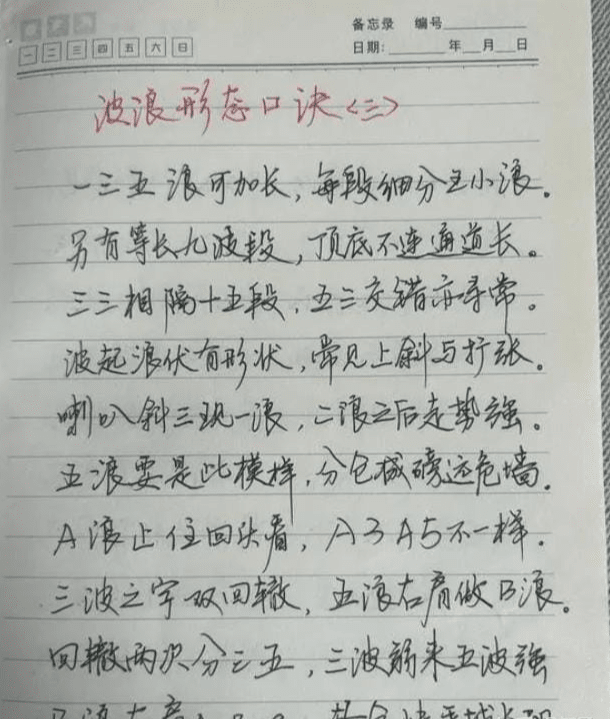 备忘录 编号
一 二 三 四 五 六 日
日期: 年 月 日
波浪形态口诀<三>
一三五浪可加长,每段细分五小浪。
另有等长九波段,顶底不连通道长。
三三相隔十五段,五三交错亦寻常。
波起浪伏有形状,常见上斜与扩张。
喇叭斜三现一浪,二浪之后走势强。
五浪要是此模样,分仓减磅远危墙。
A浪止住回头看,A3A5不一样。
三波之字双回辙,五浪右肩做B浪。
回辙两次分三五,三波弱来五波强